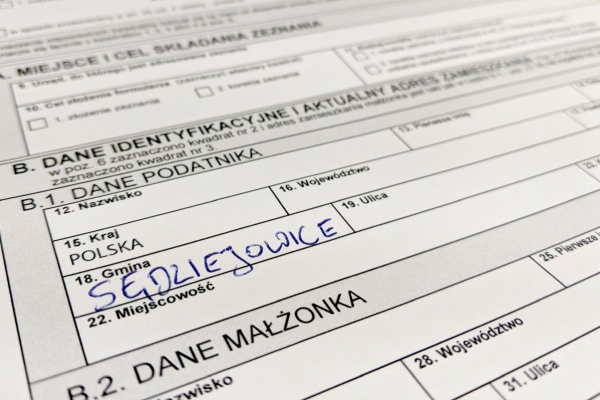 A. MIEJSCE I CEL SKŁADANIA ZEZNANIA
9. Urząd, do którego jest adresowane zeznanie
10. Cel złożenia formularza (zaznaczyć właściwy kwadrat)
1. złożenie zeznania
2. korekta zeznania
B. DANE IDENTYFIKACYJNE I AKTUALNY ADRES ZAMIESZKANIA
w poz. 6 zaznaczono kwadrat nr 2 i adres zamieszkania małżonka jest
zaznaczono kwadrat nr 3.
B.1. DANE PODATNIKA
12. Nazwisko
13. Pierwsze imię
15. Kraj
POLSKA
16. Województwo
18. Gmina
SĘDZIEJOWICE
19. Ulica
22. Miejscowość
B.2. DANE MAŁŻONKA
Nazwisko
25. Pierwsze
28. Województwo
31. Ulica